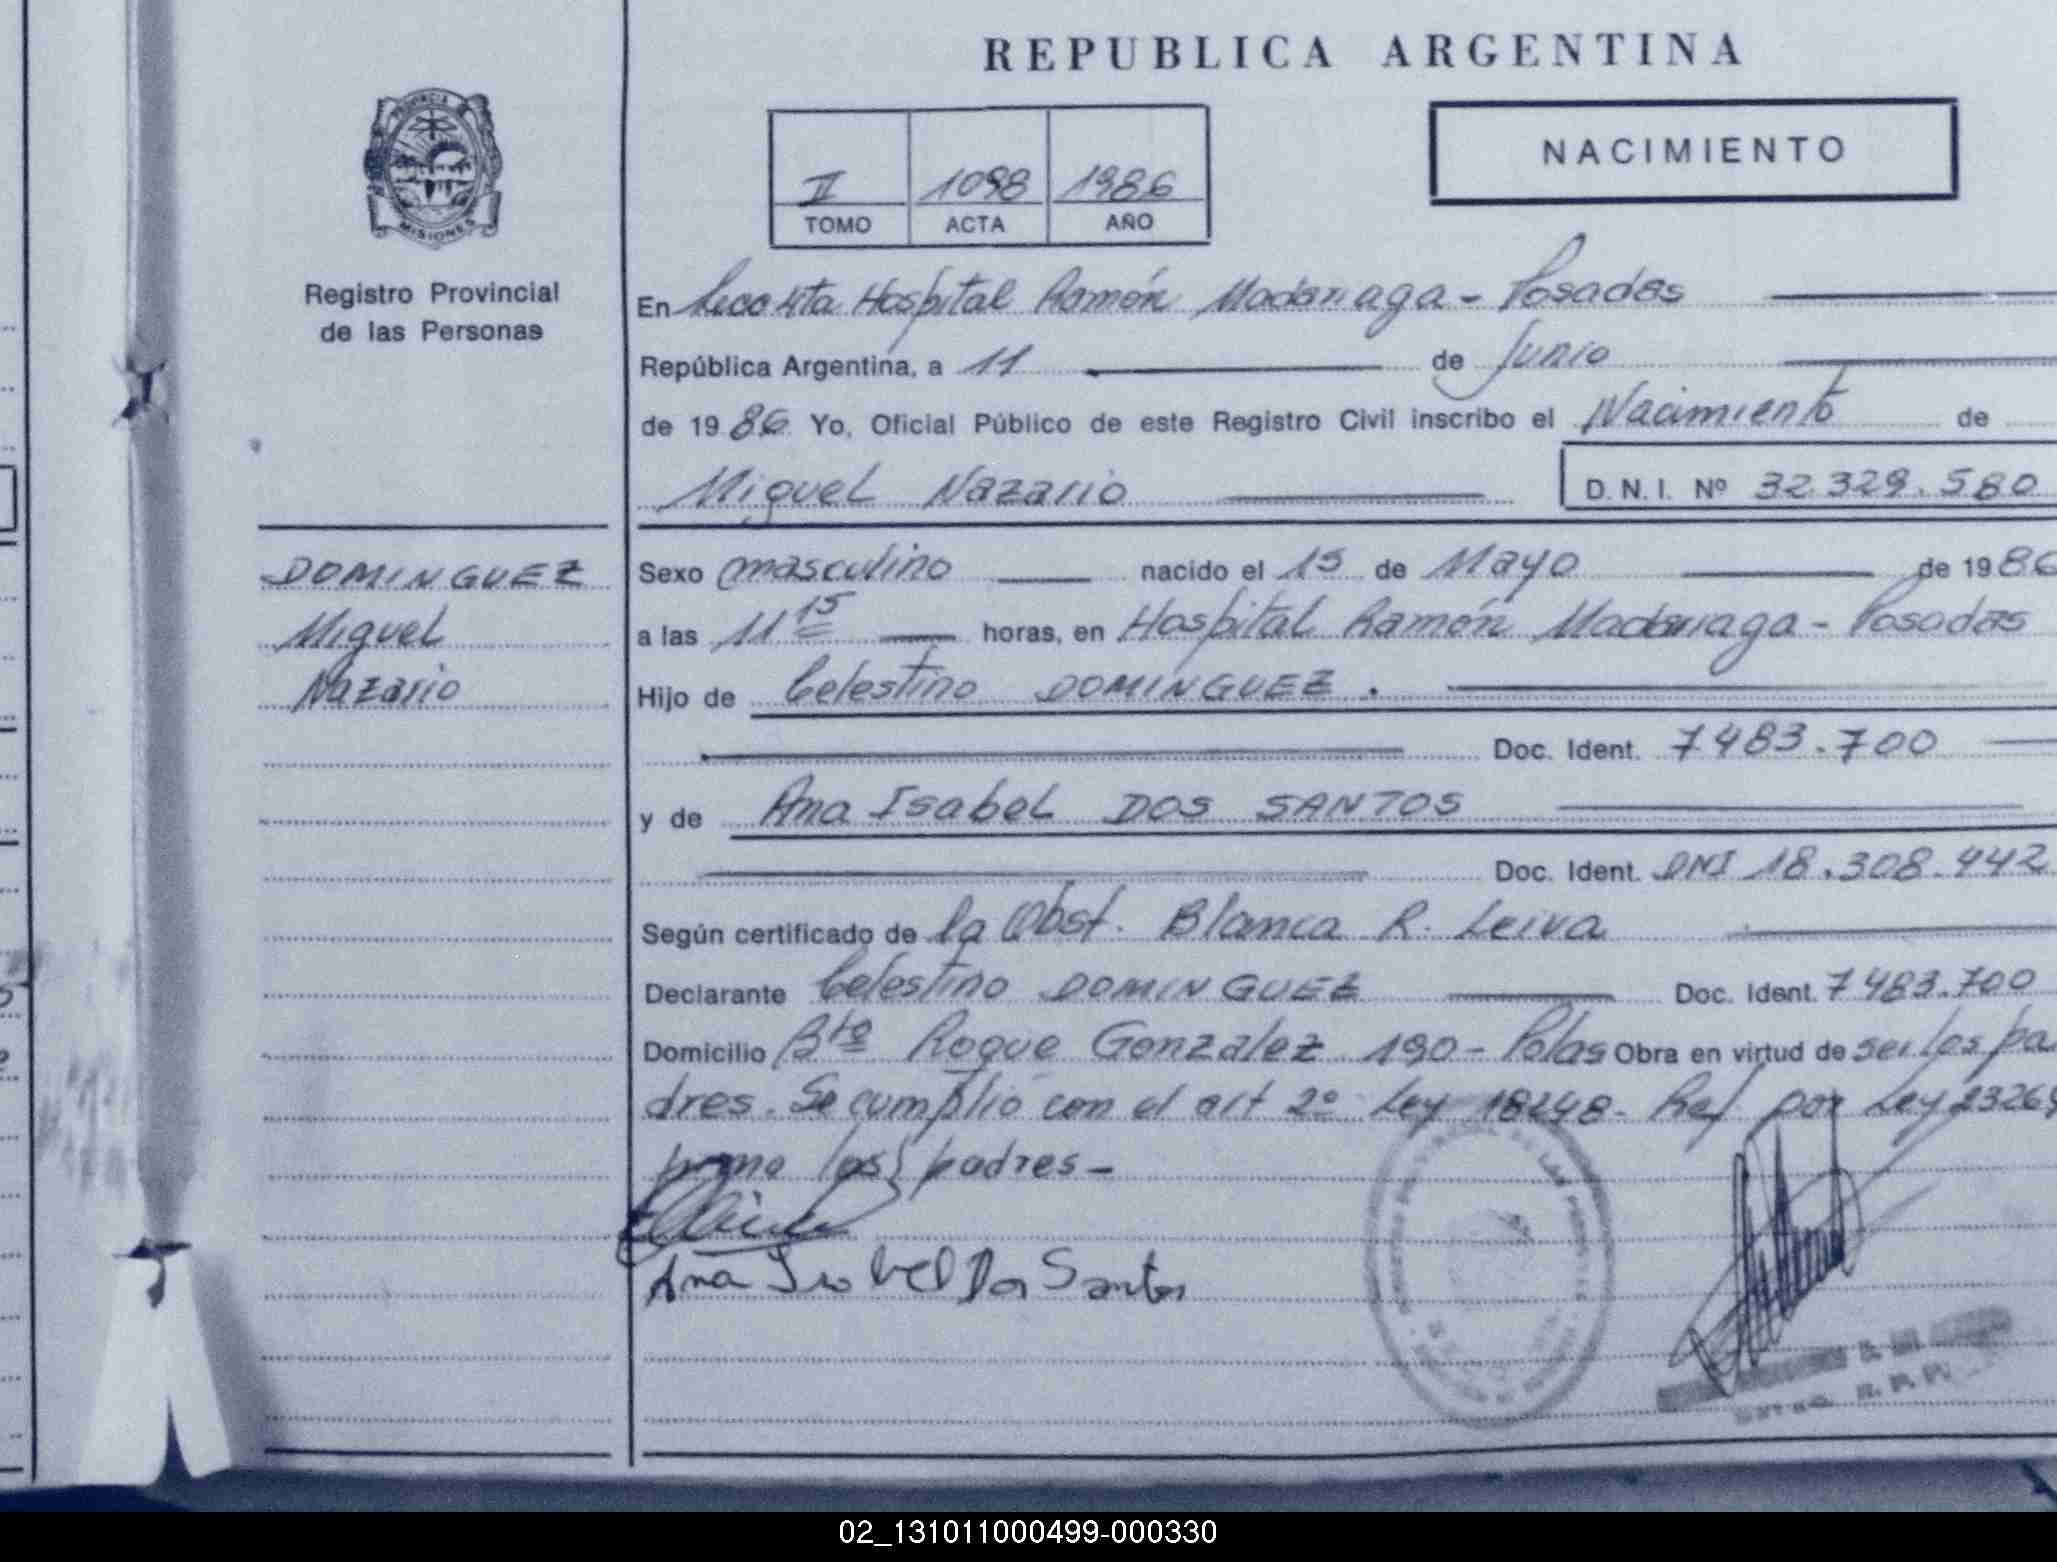 REPUBLICA ARGENTINA
NACIMIENTO
II 1098 1986
TOMO ACTA AÑO
PROVINCIA DE
MISIONES
Registro Provincial
de las Personas
DOMINGUEZ
Miguel
Nazario
En Secc 4ta Hospital Ramón Madariaga - Posadas
República Argentina, a 11 de Junio
de 1986 Yo, Oficial Público de este Registro Civil inscribo el Nacimiento de
Miguel Nazario D.N.I. Nº 32.329.580
Sexo masculino nacido el 15 de Mayo de 1986
a las 11 15 horas, en Hospital Ramón Madariaga - Posadas
Hijo de Celestino DOMINGUEZ.
Doc. Ident. 7483.700
y de Ana Isabel DOS SANTOS
Doc. Ident. DNI 18.308.442
Según certificado de la Obst. Blanca R. Leiva
Declarante Celestino DOMINGUEZ Doc. Ident. 7483.700
Domicilio Bto Roque Gonzalez 190 - Pdas Obra en virtud de ser los pa
dres. Se cumplió con el art 2º Ley 18248- Ref por Ley 23264
firma los padres-
Ana Isabel Dos Santos
R. P. P.
02_131011000499-000330